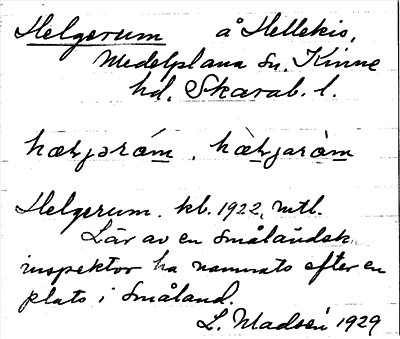 Helgerum å Hellekis,
Medelplana sn. Kinne
hd. Skarab. l.
hæljaróm, hæljaròm
Helgerum. kb. 1922, mtl.
Lär av en småländsk
inspektor ha namnats efter en
plats i Småland.
L. Madsén 1929